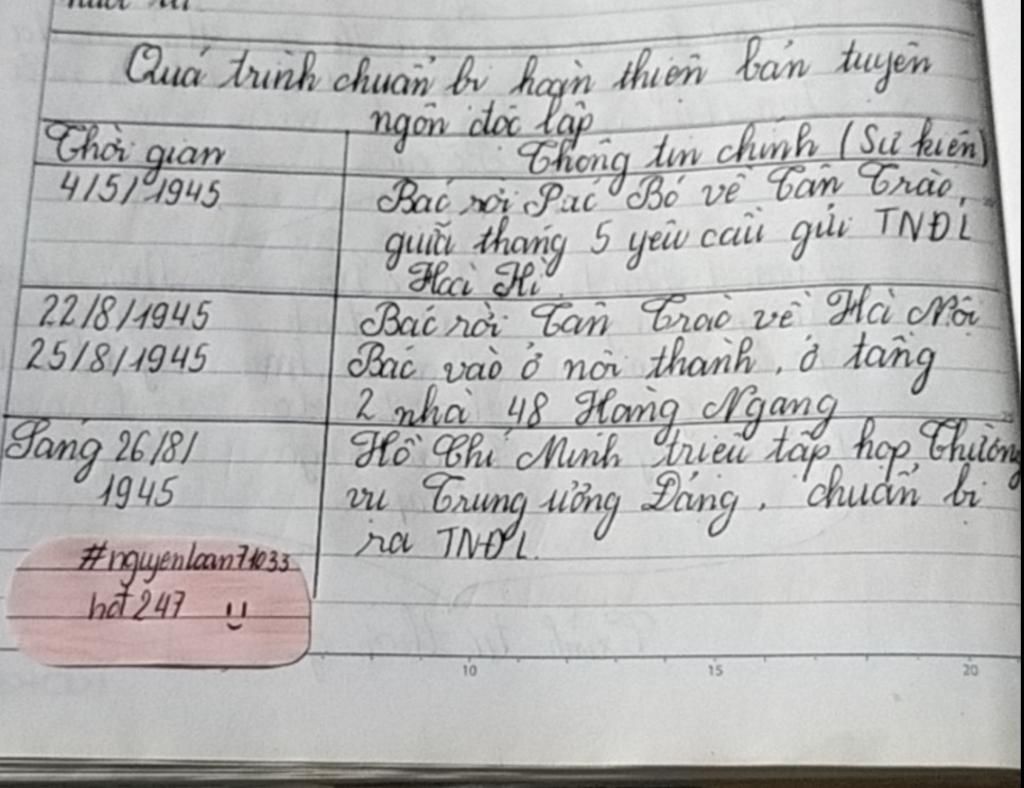 Quá trình chuẩn bị hoàn thiện bản tuyên
ngôn độc lập
Thời gian
Thông tin chính (Sự kiện)
4/5/1945
Bác rời Pác Bó về Tân Trào,
giữa tháng 5 yêu cầu gửi TNĐL
Hoa Kì
22/8/1945
Bác rời Tân Trào về Hà Nội
25/8/1945
Bác vào ở nội thành, ở tầng
2 nhà 48 Hàng Ngang
Sáng 26/8/
1945
Hồ Chí Minh triệu tập họp Thường
vụ Trung ương Đảng, chuẩn bị
ra TNĐL.
#nguyenloan71033
hđ247